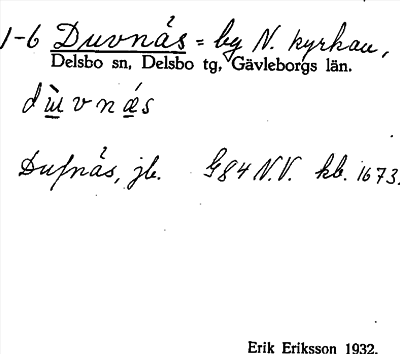 1-6 Duvnäs = by N. kyrkan,
Delsbo sn, Delsbo tg, Gävleborgs län.
dùvnǽs
Dufnäs, jb. G84 N.V. kb. 1673.
Erik Eriksson 1932.